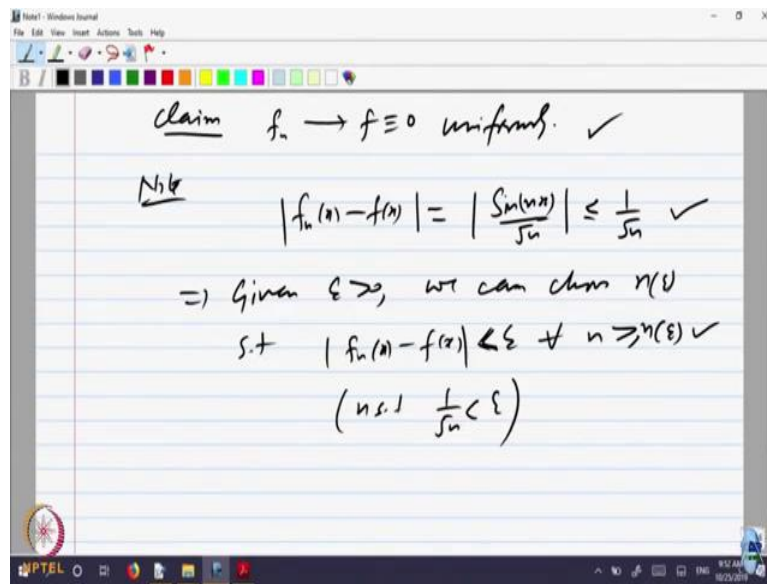 Note1 - Windows Journal
File Edit View Insert Actions Tools Help
B I
Claim fₙ → f ≡ 0 uniformly. ✓
Note
|fₙ(x) - f(x)| = |Sin(nx)/√n| ≤ 1/√n ✓
⇒ Given ε > 0, we can choose n(ε)
s.t |fₙ(x) - f(x)| < ε ∀ n ≥ n(ε) ✓
(n s.t 1/√n < ε)
NPTEL
ENG
9:52 AM
10/23/2019